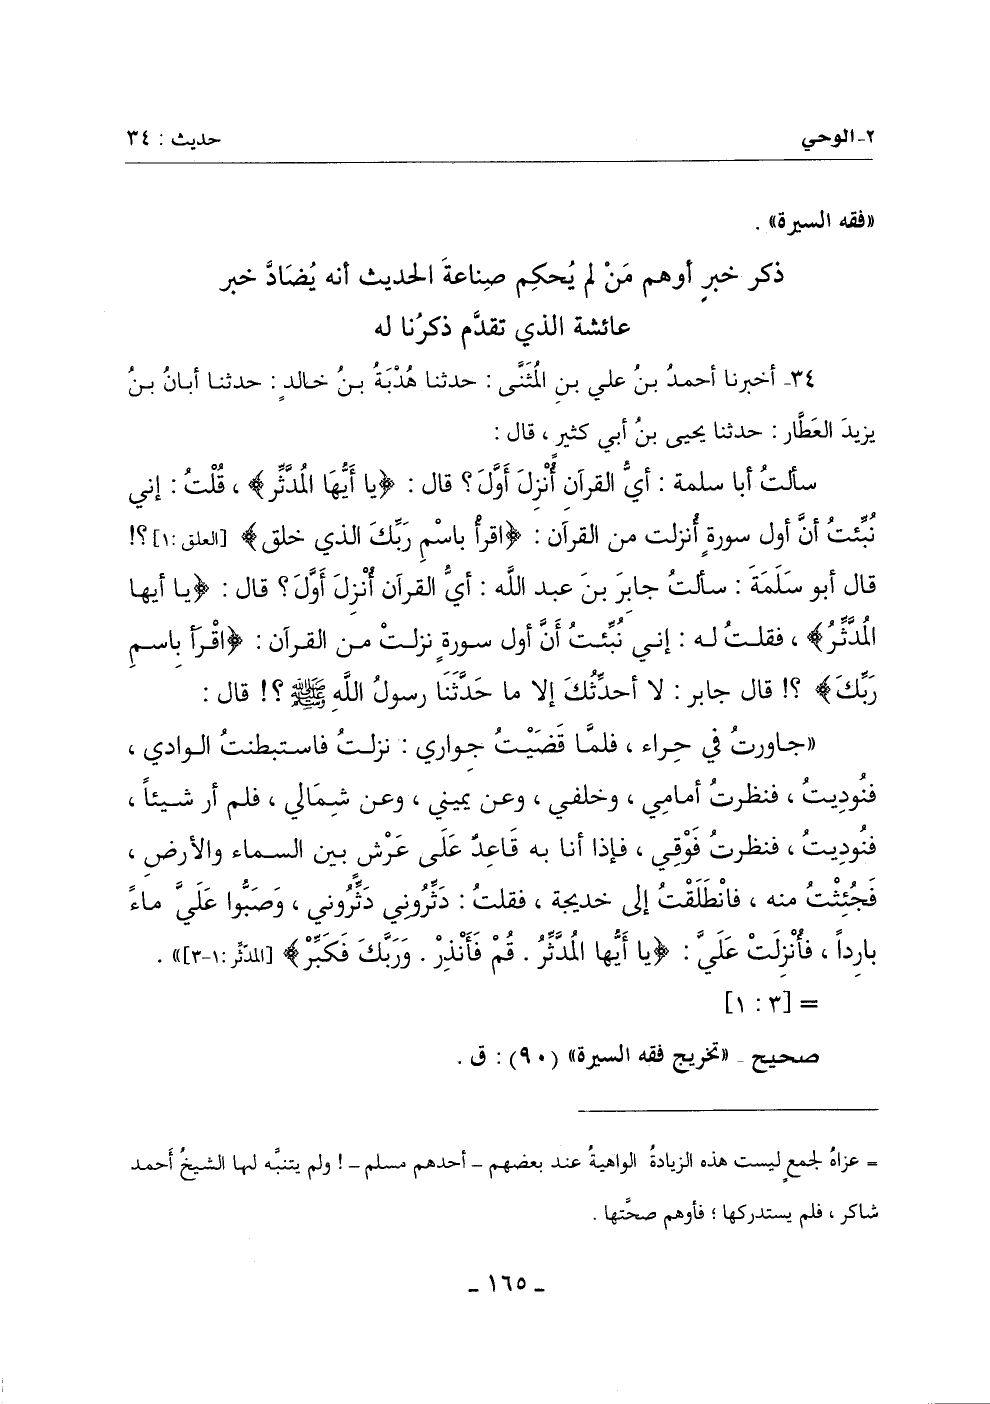 ٢-الوحي
حديث : ٣٤
«فقه السيرة» .
ذكر خبرٍ أوهم مَنْ لم يُحكِم صِناعةَ الحديث أنه يُضَادَّ خبر
عائشة الذي تقدَّم ذكرُنا له
٣٤- أخبرنا أحمدُ بنُ علي بنِ المُثَنَّى : حدثنا هُدْبَةُ بنُ خالدٍ : حدثنا أبانُ بنُ
يزيدَ العَطَّار : حدثنا يحيى بنُ أبي كثيرٍ ، قال :
سألتُ أبا سلمة : أيُّ القرآنِ أُنْزِلَ أَوَّلَ؟ قال : ﴿يا أَيُّهَا المُدَّثِّر﴾ ، قُلْتُ : إني
نُبِّئتُ أنَّ أول سورةٍ أُنزلت من القرآن : ﴿اقرأْ باسْمِ رَبِّكَ الذي خلق﴾ [العلق :١]؟!
قال أبو سَلَمَةَ : سألتُ جابِرَ بنَ عبد اللَّه : أيُّ القرآن أُنْزِلَ أَوَّلَ؟ قال : ﴿يا أيها
المُدَّثِّرُ﴾ ، فقلتُ له : إني نُبِّئتُ أنَّ أول سورةٍ نزلتْ من القرآن : ﴿اقْرَأ باسمِ
رَبِّكَ﴾ ؟! قال جابر : لا أحدِّثُكَ إلا ما حَدَّثَنَا رسولُ اللَّهِ ﷺ ؟! قال :
«جاورتُ في حِراء ، فلمَّا قضَيْتُ جِواري : نزلتُ فاستبطنتُ الوادي ،
فنُودِيتُ ، فنظرتُ أمامِي ، وخلفي ، وعن يميني ، وعن شِمَالي ، فلم أر شيئاً ،
فنُودِيتُ ، فنظرتُ فَوْقِي ، فإذا أنا به قَاعِدٌ عَلَى عَرْشٍ بين السماء والأرضِ ،
فَجُئِثْتُ منه ، فانْطَلَقْتُ إلى خديجة ، فقلتُ : دَثِّرُونِي دَثِّرُوني ، وَصَبُّوا عَلَيَّ ماءً
بارِداً ، فأُنْزِلَتْ عَلَيَّ : ﴿يا أَيُّها المُدَّثِّرُ . قُمْ فَأَنْذِرْ . وَرَبَّكَ فَكَبِّرْ﴾ [المدّثر :١-٣]» .
= [٣ : ١]
صحيح - «تخريج فقه السيرة» (٩٠) : ق .
= عزاهُ لجمعٍ ليست هذه الزيادةُ الواهيةُ عند بعضهم – أحدهم مسلم – ! ولم يتنبَّه لها الشيخُ أحمد
شاكر ، فلم يستدركها ؛ فأوهم صحَّتها .
- ١٦٥ -